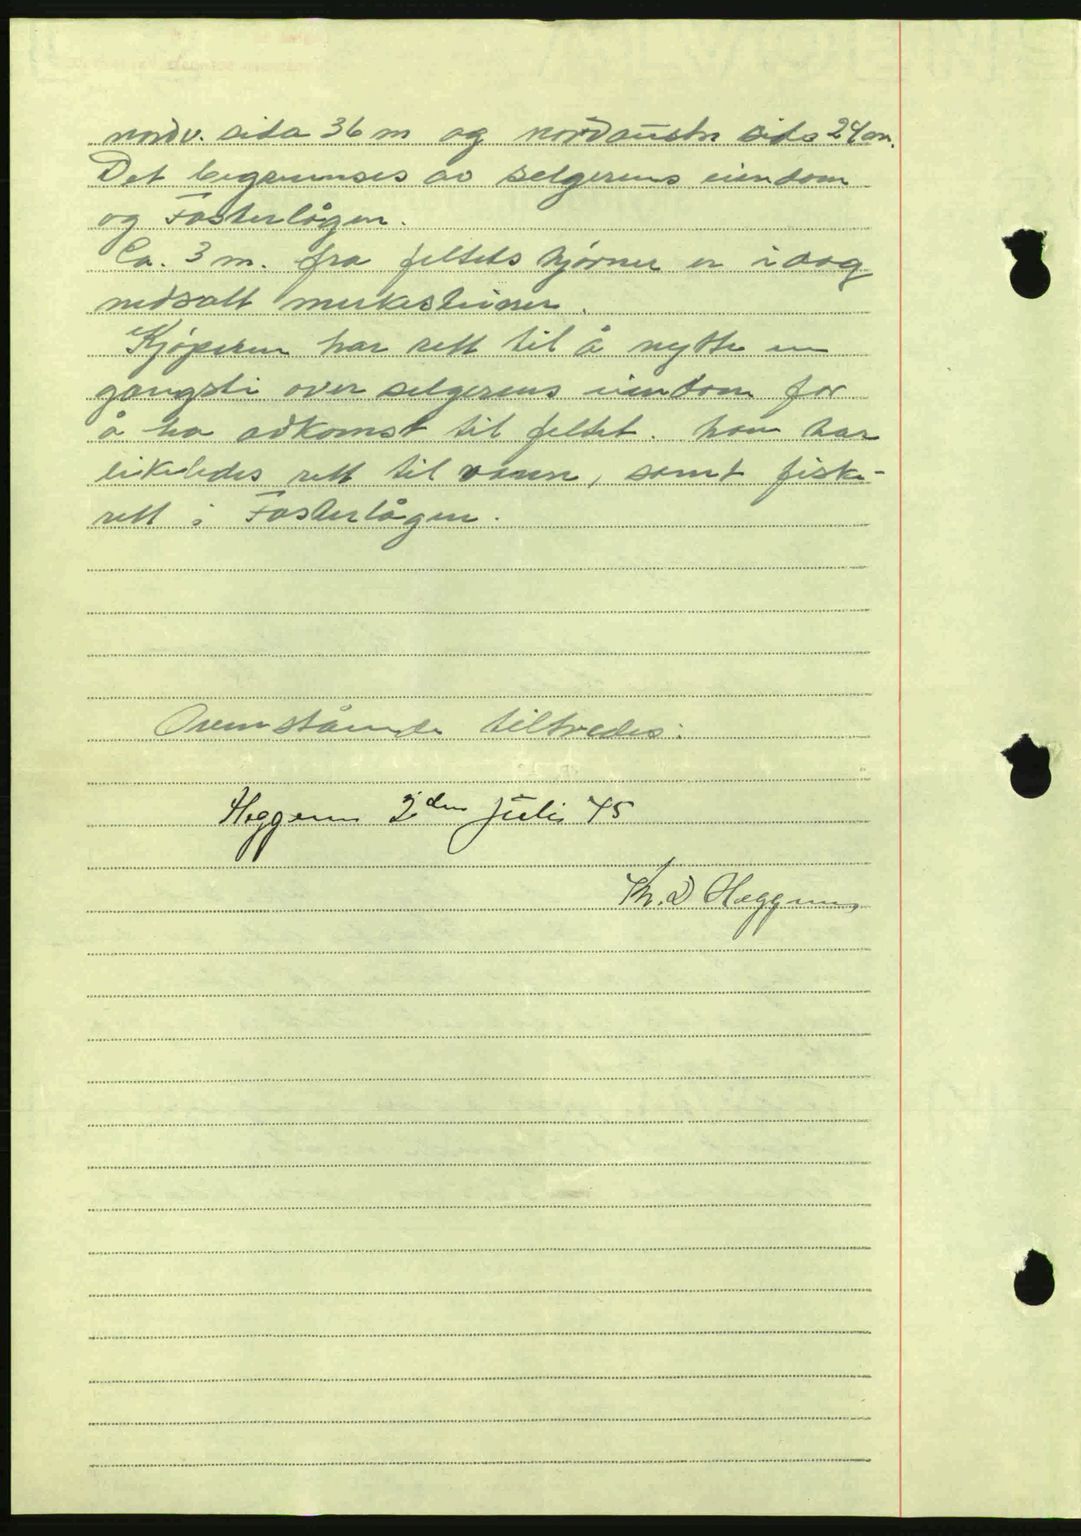 nordv. sida 36 m og nordaustre sida 24 m.
Det begrenses av selgerens eiendom
og Fosterlågen.
Ca. 3 m. fra feltets hjørner er i dag
nedsatt merkesteiner.
Kjøperen har rett til å nytte en
gangsti over selgerens eiendom for
å ha adkomst til feltet. han har
likeledes rett til vann, samt fiske-
rett i Fosterlågen.
Ovenstående tiltredes:
Heggem 2den Juli 45
D Heggem